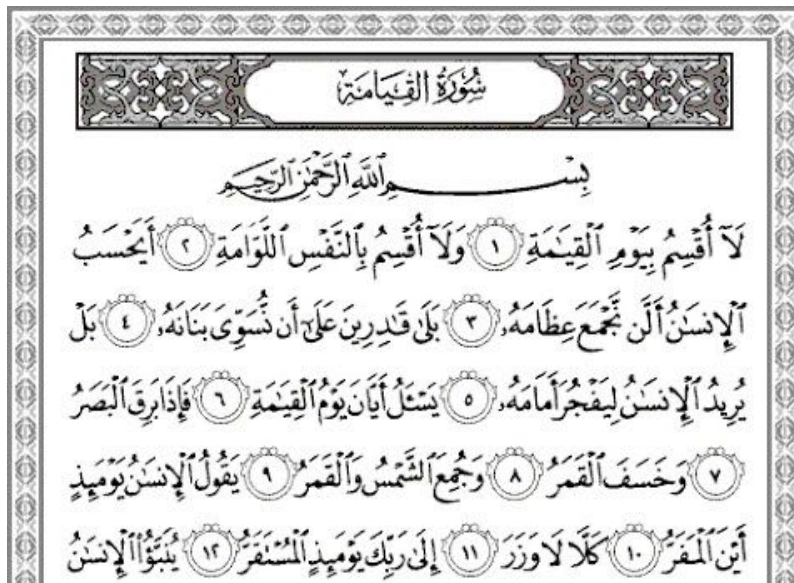 سُورَةُ القِيَامَةِ
بِسْمِ ٱللَّهِ ٱلرَّحْمَٰنِ ٱلرَّحِيمِ
لَآ أُقْسِمُ بِيَوْمِ ٱلْقِيَٰمَةِ ١ وَلَآ أُقْسِمُ بِٱلنَّفْسِ ٱللَّوَّامَةِ ٢ أَيَحْسَبُ
ٱلْإِنسَٰنُ أَلَّن نَّجْمَعَ عِظَامَهُۥ ٣ بَلَىٰ قَٰدِرِينَ عَلَىٰٓ أَن نُّسَوِّىَ بَنَانَهُۥ ٤ بَلْ
يُرِيدُ ٱلْإِنسَٰنُ لِيَفْجُرَ أَمَامَهُۥ ٥ يَسْـَٔلُ أَيَّانَ يَوْمُ ٱلْقِيَٰمَةِ ٦ فَإِذَا بَرِقَ ٱلْبَصَرُ
٧ وَخَسَفَ ٱلْقَمَرُ ٨ وَجُمِعَ ٱلشَّمْسُ وَٱلْقَمَرُ ٩ يَقُولُ ٱلْإِنسَٰنُ يَوْمَئِذٍ
أَيْنَ ٱلْمَفَرُّ ١٠ كَلَّا لَا وَزَرَ ١١ إِلَىٰ رَبِّكَ يَوْمَئِذٍ ٱلْمُسْتَقَرُّ ١٢ يُنَبَّؤُا۟ ٱلْإِنسَٰنُ